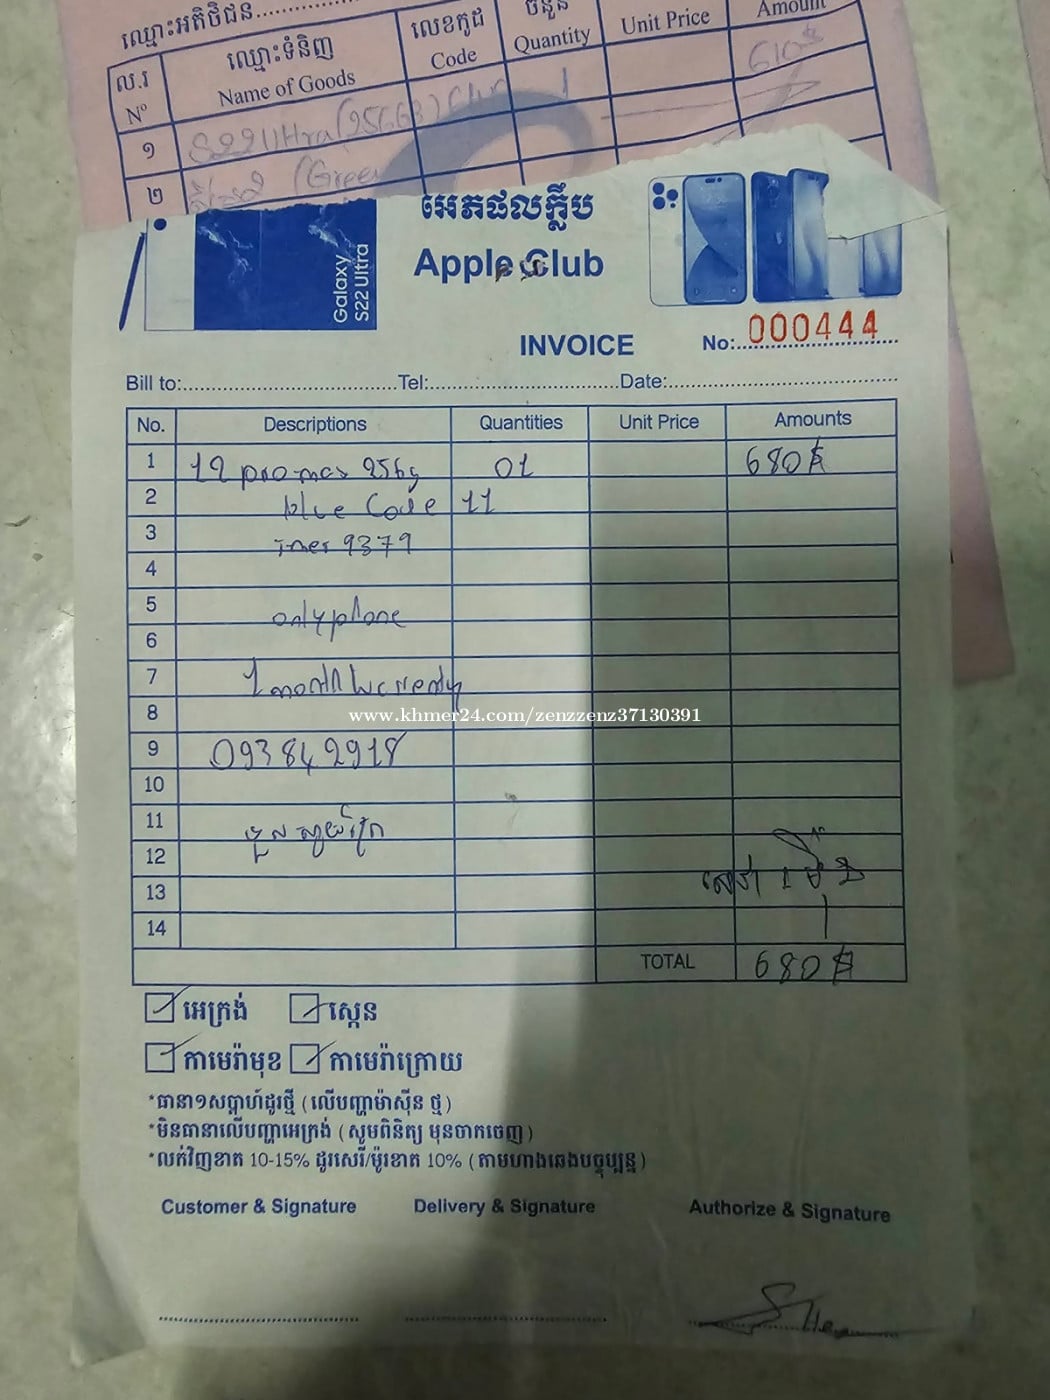 ឈ្មោះអតិថិជន
ល.រ ឈ្មោះទំនិញ លេខកូដ ចំនួន
Nº Name of Goods Code Quantity Unit Price Amount
១ S22 Ultra (256GB) 1 610$
២ (Green
Galaxy S22 Ultra
អេភផលក្លឹប
Apple Club
INVOICE No: 000444
Bill to: Tel: Date:
No. Descriptions Quantities Unit Price Amounts
1 12 pro max 256g 01 680$
2 blue Code 11
3 imei 9379
4
5 only phone
6
7 1 month
8
9 093842918
10
11
12
13
14
TOTAL 680$
អេក្រង់ ស្កេន
កាមេរ៉ាមុខ កាមេរ៉ាក្រោយ
*ធានា១សប្តាហ៍ដូរថ្មី (លើបញ្ហាម៉ាស៊ីន ថ្ម)
*មិនធានាលើបញ្ហាអេក្រង់ (សូមពិនិត្យ មុនចាកចេញ)
*លក់វិញខាត 10-15% ដូរសេរី/ម៉ូរខាត 10% (តាមហាងឆេងបច្ចុប្បន្ន)
Customer & Signature Delivery & Signature Authorize & Signature
www.khmer24.com/zenzzenz37130391